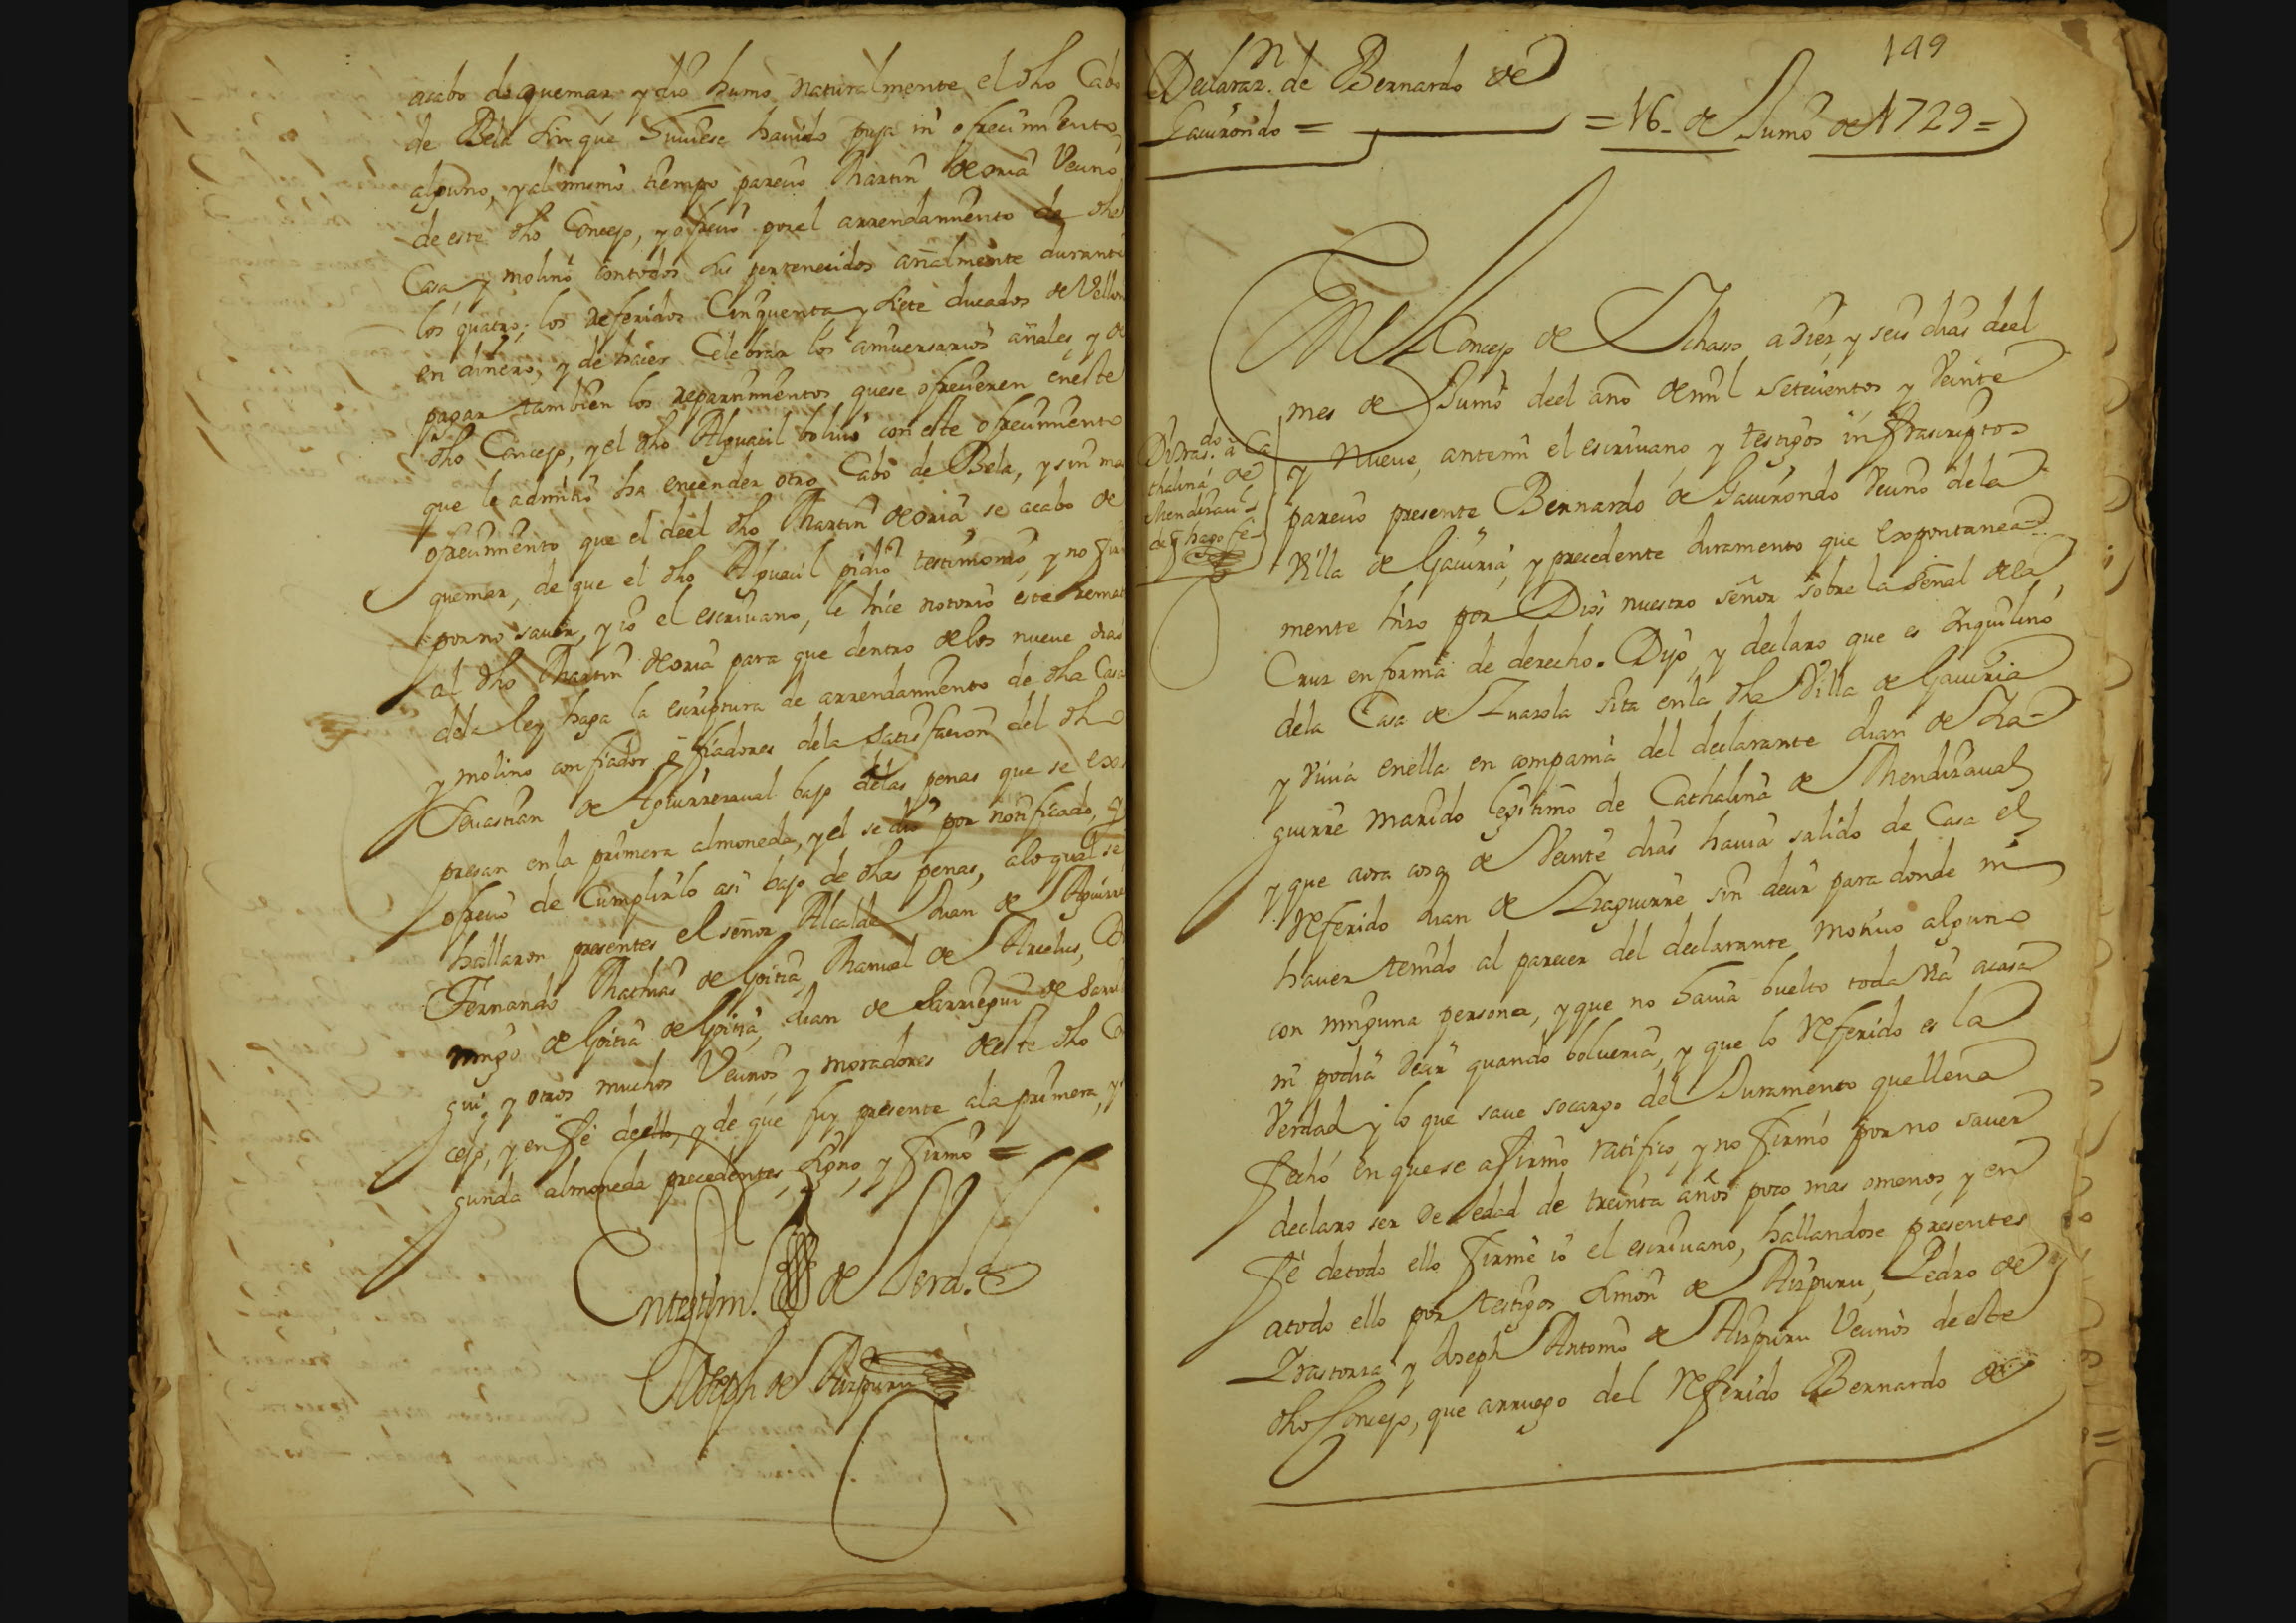 acabo de quemar y dio humo naturalmente el dho Cabo
de Bela sin que huuiese hauido puja ni ofrecimiento
alguno, y al mismo tiempo parecio Martin de oria Vecino
de este dho Concejo, y ofrecio por el arrendamiento de dha
Casa y molino con todos sus pertenecidos añalmente durante
los quatro, los referidos Cinquenta y siete ducados de Vellon
en dinero, y de hacer Celebrar los aniuersarios añales y de
pagar tambien los repartimientos que se ofrecieren en este
dho Concejo, y el dho Alguacil boluio con este ofrecimiento
que le admitio ha encender otro Cabo de Bela, y sin mas
ofrecimiento que el deel dho Martin de oria se acabo de
quemar, de que el dho Alguacil pidio testimonio, y no firmo
por no sauer, y io el escriuano, le hice notorio este remate
al dho Martin de oria para que dentro de los nueve dias
dela ley haga la escriptura de arrendamiento de dha Casa
y molino con fiador o fiadores dela satisfacion del dho
Seuastian de Aguirrezaual bajo delas penas que se ex
presan en la primera almoneda, y el se dio por notificado, y
ofrecio de Cumplirlo asi bajo de dhas penas, alo qual se
hallaron presentes el señor Alcalde Juan de Aguirre
Fernando Mathias de Goitia, Manuel de Arcelus, Do
mingo de Goitia de Goitia, Juan de Sarriegui de Sarrie
gui, y otros muchos Vecinos y moradores deeste dho Con
cejo, y en fe deello, y de que fuy presente ala primera, y se
gunda almoneda precedentes, signo, y firmo =
En testim.º de Verd.d
Joseph de Aizpuru
149
Declaraz.n de Bernardo de
Gauirondo =
= 16 = de Junio de 1729 =
En el Concejo de Ichasso a diez y seis dias deel
mes de Junio deel año de mil setecientos y Veinte
y Nueve, ante mi el escriuano y testigos infrascriptos
parecio presente Bernardo de Gauirondo Vecino dela
Villa de Gauiria, y precedente Juramento que expontanea
mente hizo por Dios nuestro señor sobre la señal dela
Cruz en forma de derecho. Dijo, y declaro que es Inquilino
dela Casa de Zuazola sita en la dha Villa de Gauiria
y viuia en ella en compania del declarante Juan de Iza
guirre marido legitimo de Cathalina de Mendizaual
y que aora cosa de Veinte dias hauia salido de Casa el
referido Juan de Izaguirre sin decir para donde ni
hauer tenido al parecer del declarante motiuo alguno
con ninguna persona, y que no hauia buelto toda via a casa
ni podia decir quando bolueria, y que lo referido es la
Verdad y lo que saue socargo del Juramento que lleua
fecho en que se afirmo ratifico, y no firmo por no sauer
declaro ser de edad de treinta años poco mas omenos, y en
fe de todo ello firme io el escriuano, hallandose presentes
atodo ello por testigos Simon de Aizpuru, Pedro de
Irastorza y Joseph Antonio de Aizpuru Vecinos de este
dho Concejo, que arruego del referido Bernardo de
Dí tras.do a Ca
thalina de
Mendizaual
de q hago fe